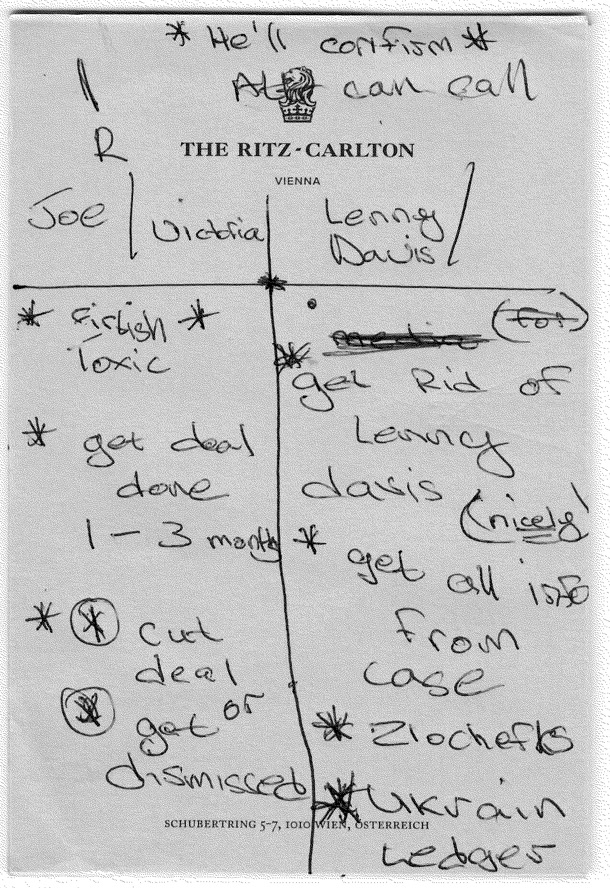 * He'll confirm *
Al can call
R
THE RITZ-CARLTON
VIENNA
Joe
Victoria
Lenny
Davis
* Firtash *
Toxic
* get deal
done
1-3 months
* * cut
deal
* get or
dismissed
media (for)
* get Rid of
Lenny
davis
(nicely)
* get all info
from
case
* Zlochefks
* Ukrain
Ledger
SCHUBERTRING 5-7, 1010 WIEN, ÖSTERREICH